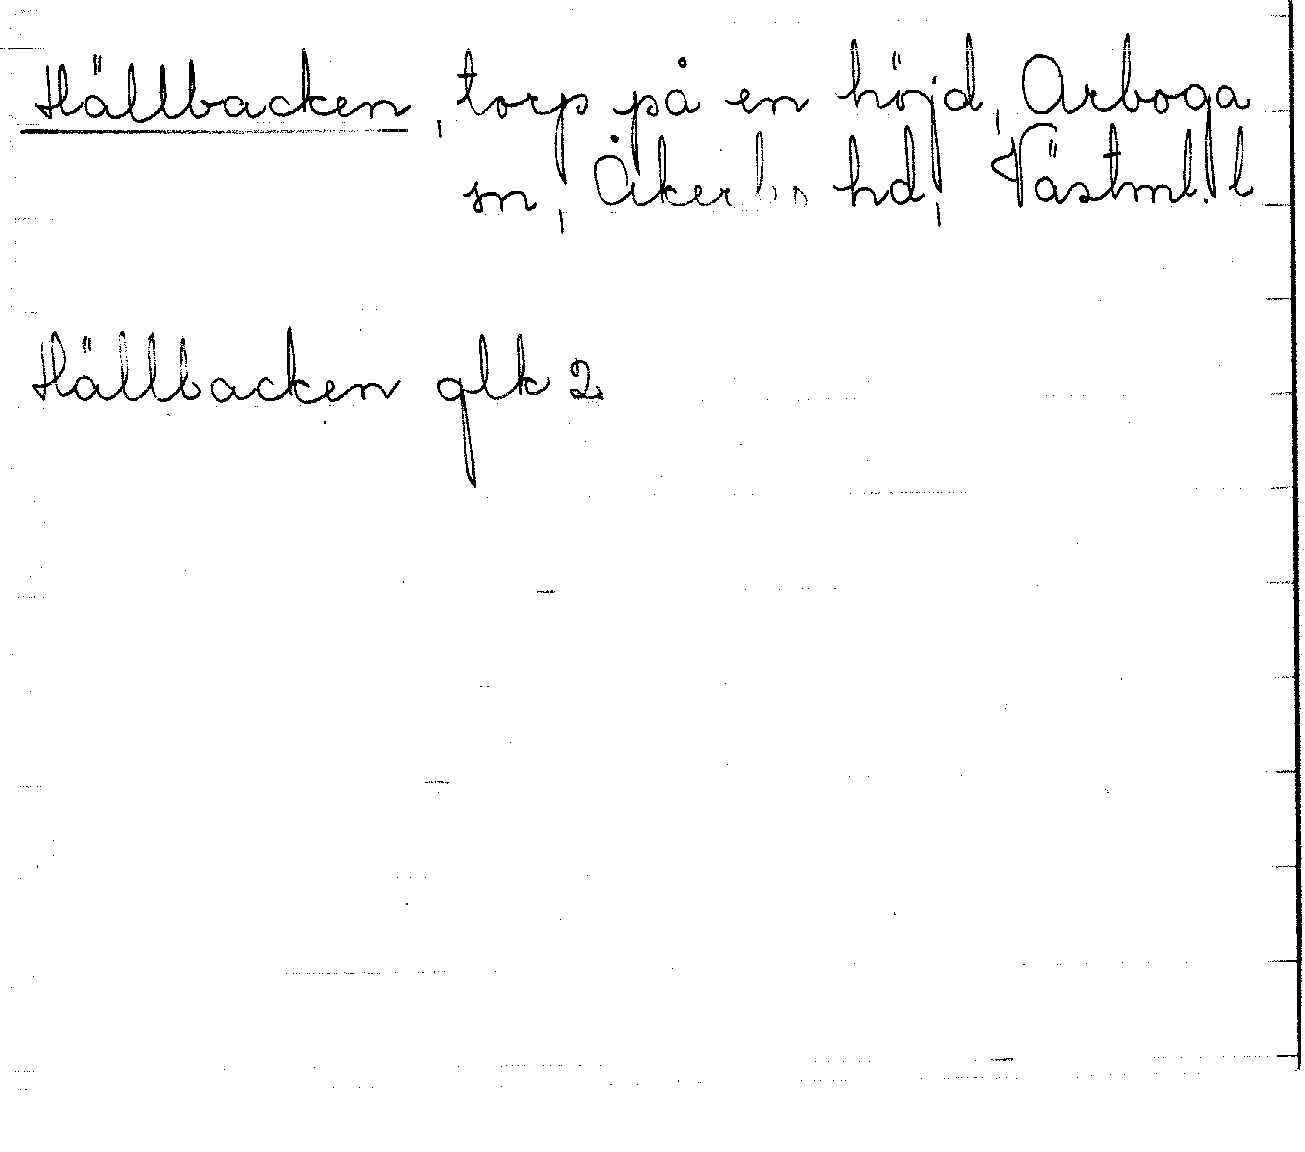 Hällbacken, torp på en höjd, Arboga
sn, Åkerbo hd, Västml. l
Hällbacken glk 2